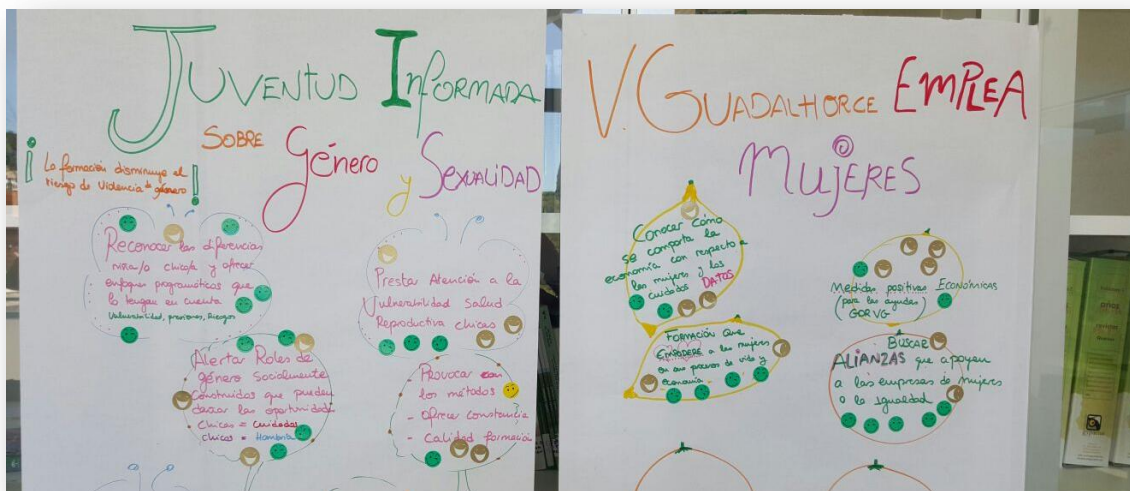 JUVENTUD INFORMADA
SOBRE Género y SEXUALIDAD
¡La formación disminuye el
riesgo de Violencia de género!
Reconocer las diferencias
niña/o chica/x y ofrecer
enfoques programáticos que
lo tengan en cuenta
Vulnerabilidad, presiones, Riesgos
Presta Atención a la
Vulnerabilidad Salud
Reproductiva chicas
Alertar Roles de
género Socialmente
Construidos que pueden
dañar las oportunidades
chicas = cuidados
chicos = Hombría
- Provocar con
los métodos
- Ofrecer constancia
- Calidad formación
V. GUADALHORCE EMPLEA
MUJERES
Conocer cómo
se comporta la
economía con respecto a
las mujeres y los
cuidados DATOS
Medidas positivas ECONÓMICAS
(para las ayudas)
GDRVG
FORMACIÓN QUE
EMPODERE a las mujeres
en sus procesos de vida y
economía
BUSCAR
ALIANZAS que apoyen
a las empresas de mujeres
o la igualdad